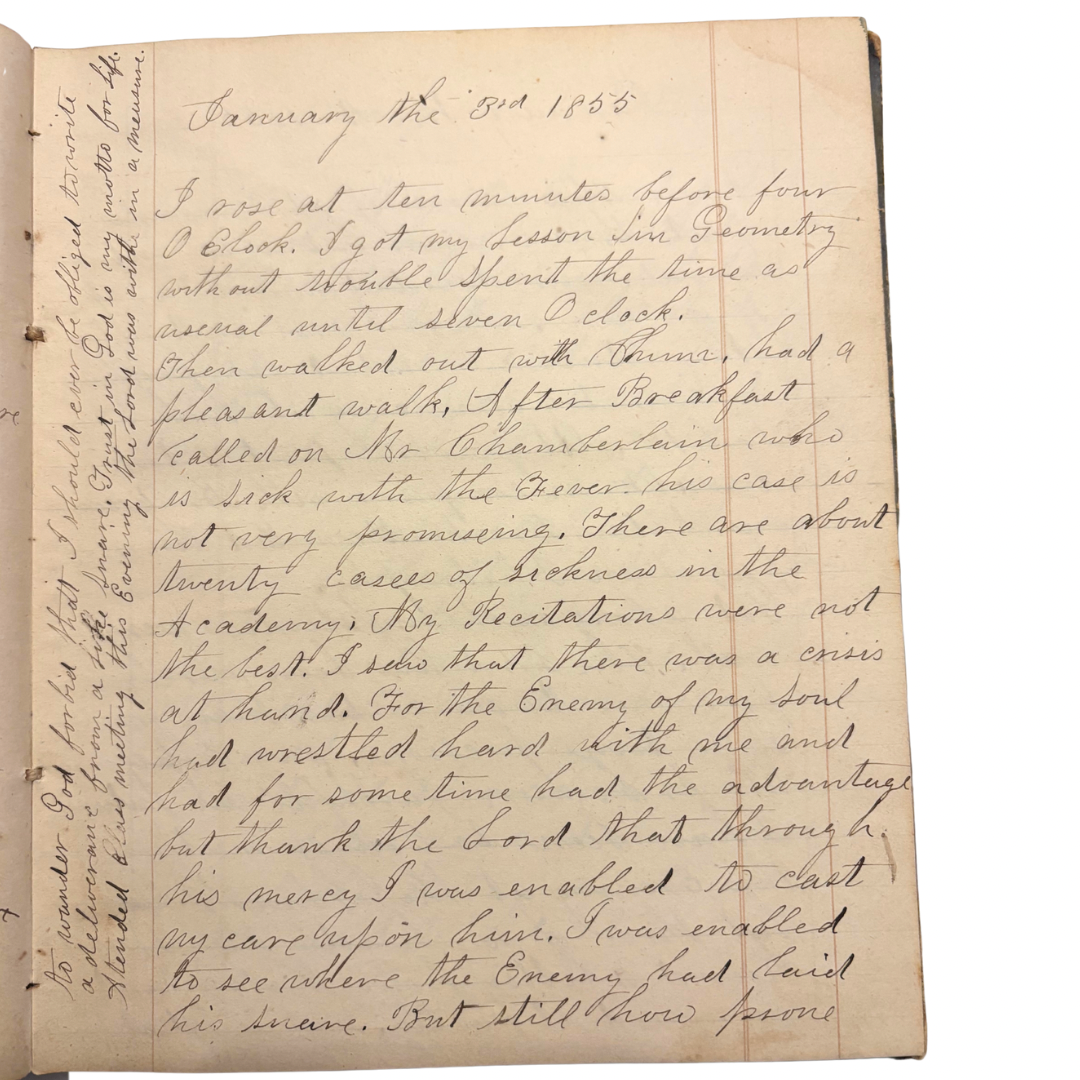 January the 3rd 1855
I rose at ten minutes before four
O Clock. I got my Lesson in Geometry
without trouble spent the time as
usenal until seven O clock.
Then walked out with had a
pleasant walk, After Breakfast
called on Mr Chamberlain who
is sick with the Fever. his case is
not very promiseing. There are about
twenty casees of sickness in the
Academy. My Recitations were not
the best. I saw that there was a crisis
at hand. For the Enemy of my soul
had wrestled hard with me and
had for some time had the advantage
but thank the Lord that through.
his mercy I was enabled to cast
my care upon him. I was enabled
to see where the Enemy had laid
his snare. But still how prone
to wander. God forbid that I should ever be obliged to write
a deliverance from a like snare. Trust in God is my motto for life.
Attended Class meeting this Evening the Lord was with in a measure.